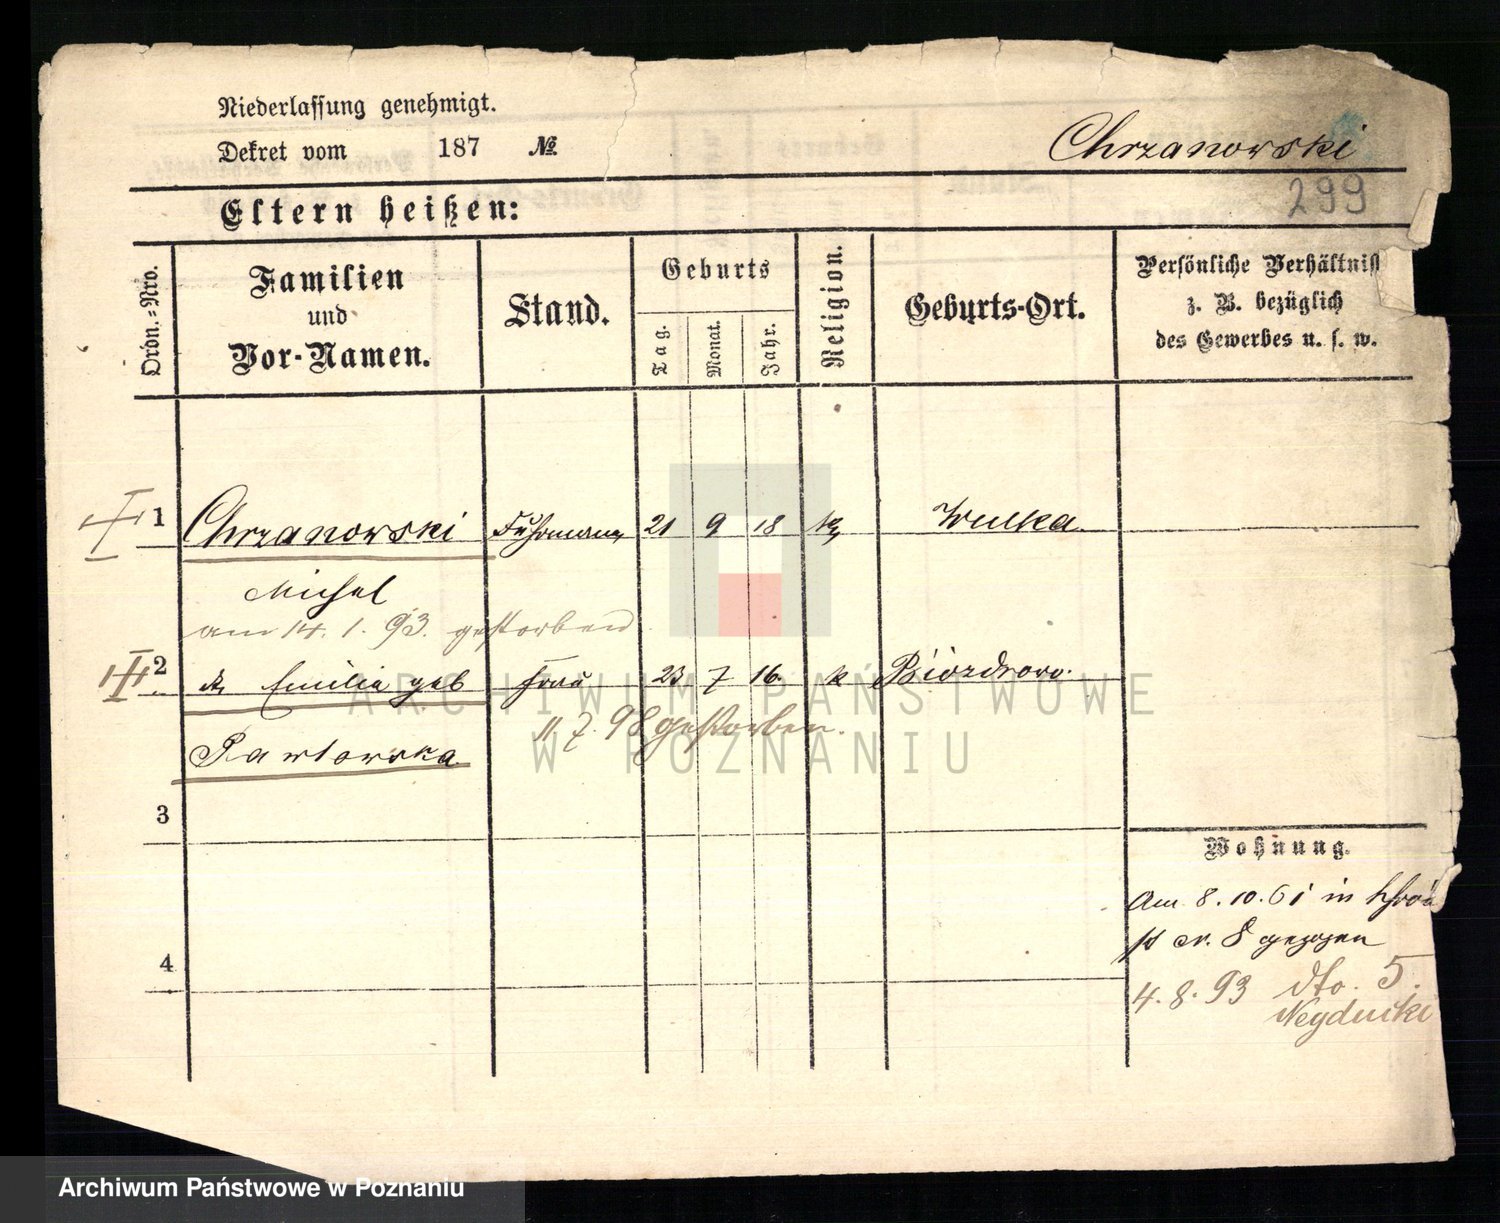 Niederlassung genehmigt.
Dekret vom 187 №
Chrzanowski
299
Eltern heißen:
Ordn.-Nro.
Familien
und
Vor-Namen.
Stand.
Geburts
Tag.
Monat.
Jahr.
Religion.
Geburts-Ort.
Persönliche Verhältniss
z. B. bezüglich
des Gewerbes u. s. w.
1 Chrzanowski Fuhrmann 21 9 18 k Wulka
Michel
am 14. 1. 93. gestorben
2 Emilie geb Frau 23 7 16. k
11. 7. 98 gestorben.
Pawlowska
3
Wohnung.
Am 8. 10. 61 in
8 gezogen
4
4. 8. 93 dto. 5.
ARCHIWUM PAŃSTWOWE
W POZNANIU
Archiwum Państwowe w Poznaniu